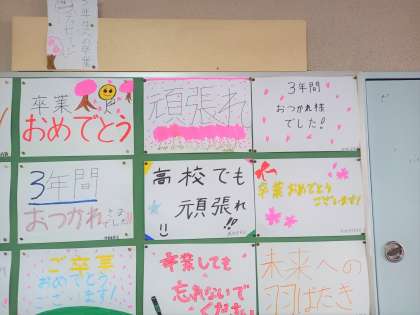 卒業
おめでとう
頑張れ
3年間
おつかれ様
でした!
3年間
おつかれさま
でした!!
高校でも
頑張れ!!
卒業おめでとう
ございます!
ご卒業
おめでとう
ございます!
卒業しても
忘れないで
ください
未来への
羽ばたき